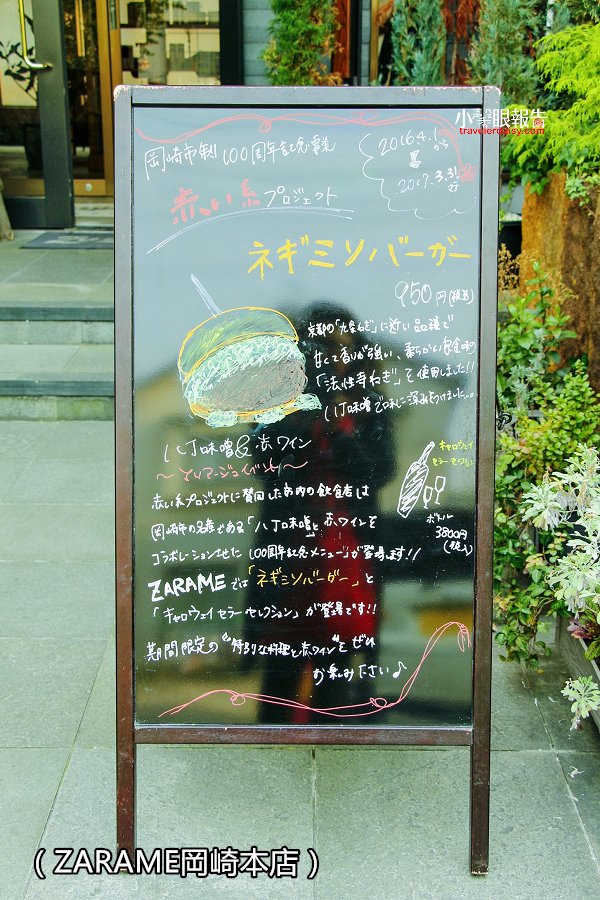 小氣眼報告
traveleredisy.com
岡崎市制100周年記念事業
2016.4.1から
2017.3.31まで
赤い糸プロジェクト
ネギミソバーガー
950円(税込)
京都の「九条ねぎ」に近い品種で
甘くて香りが強い、柔らかい
「法性寺ねぎ」を使用しました!!
八丁味噌で味に深みをつけました。
八丁味噌&赤ワイン
キャロウェイ
セラーセレクション
ボトル
3800円
(税込)
赤い糸プロジェクトに賛同した市内の飲食店は
岡崎市の名産である「八丁味噌」と赤ワインを
コラボレーションさせた100周年記念メニューが登場します!!
ZARAMEでは「ネギミソバーガー」と
「キャロウェイセラーセレクション」が登場です!!
期間限定の"特別な料理と赤ワイン"をぜひ
お楽しみ下さい♪
(ZARAME岡崎本店)